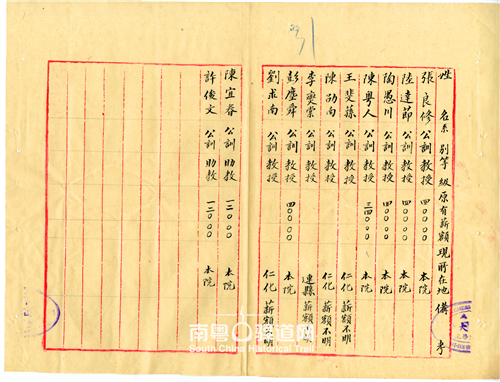 姓名 系別 等級 原有薪額 現所在地 備考
張良修 公訓 教授 四〇〇〇〇 本院
陸達節 公訓 教授 四〇〇〇〇 本院
陶愚川 公訓 教授 四〇〇〇〇 本院
陳粵人 公訓 教授 三四〇〇〇 本院
王斐蓀 公訓 教授 仁化 薪額不明
陳劭南 公訓 教授 仁化 薪額不明
李燮棠 公訓 教授 連縣 薪額不明
彭塵舜 公訓 教授 四〇〇〇〇 本院
劉求南 公訓 教授 仁化 薪額不明
陳宜春 公訓 助教 一二〇〇〇 本院
許俊文 公訓 助教 一二〇〇〇 本院
南粤古驿道网
South China Historical Trail